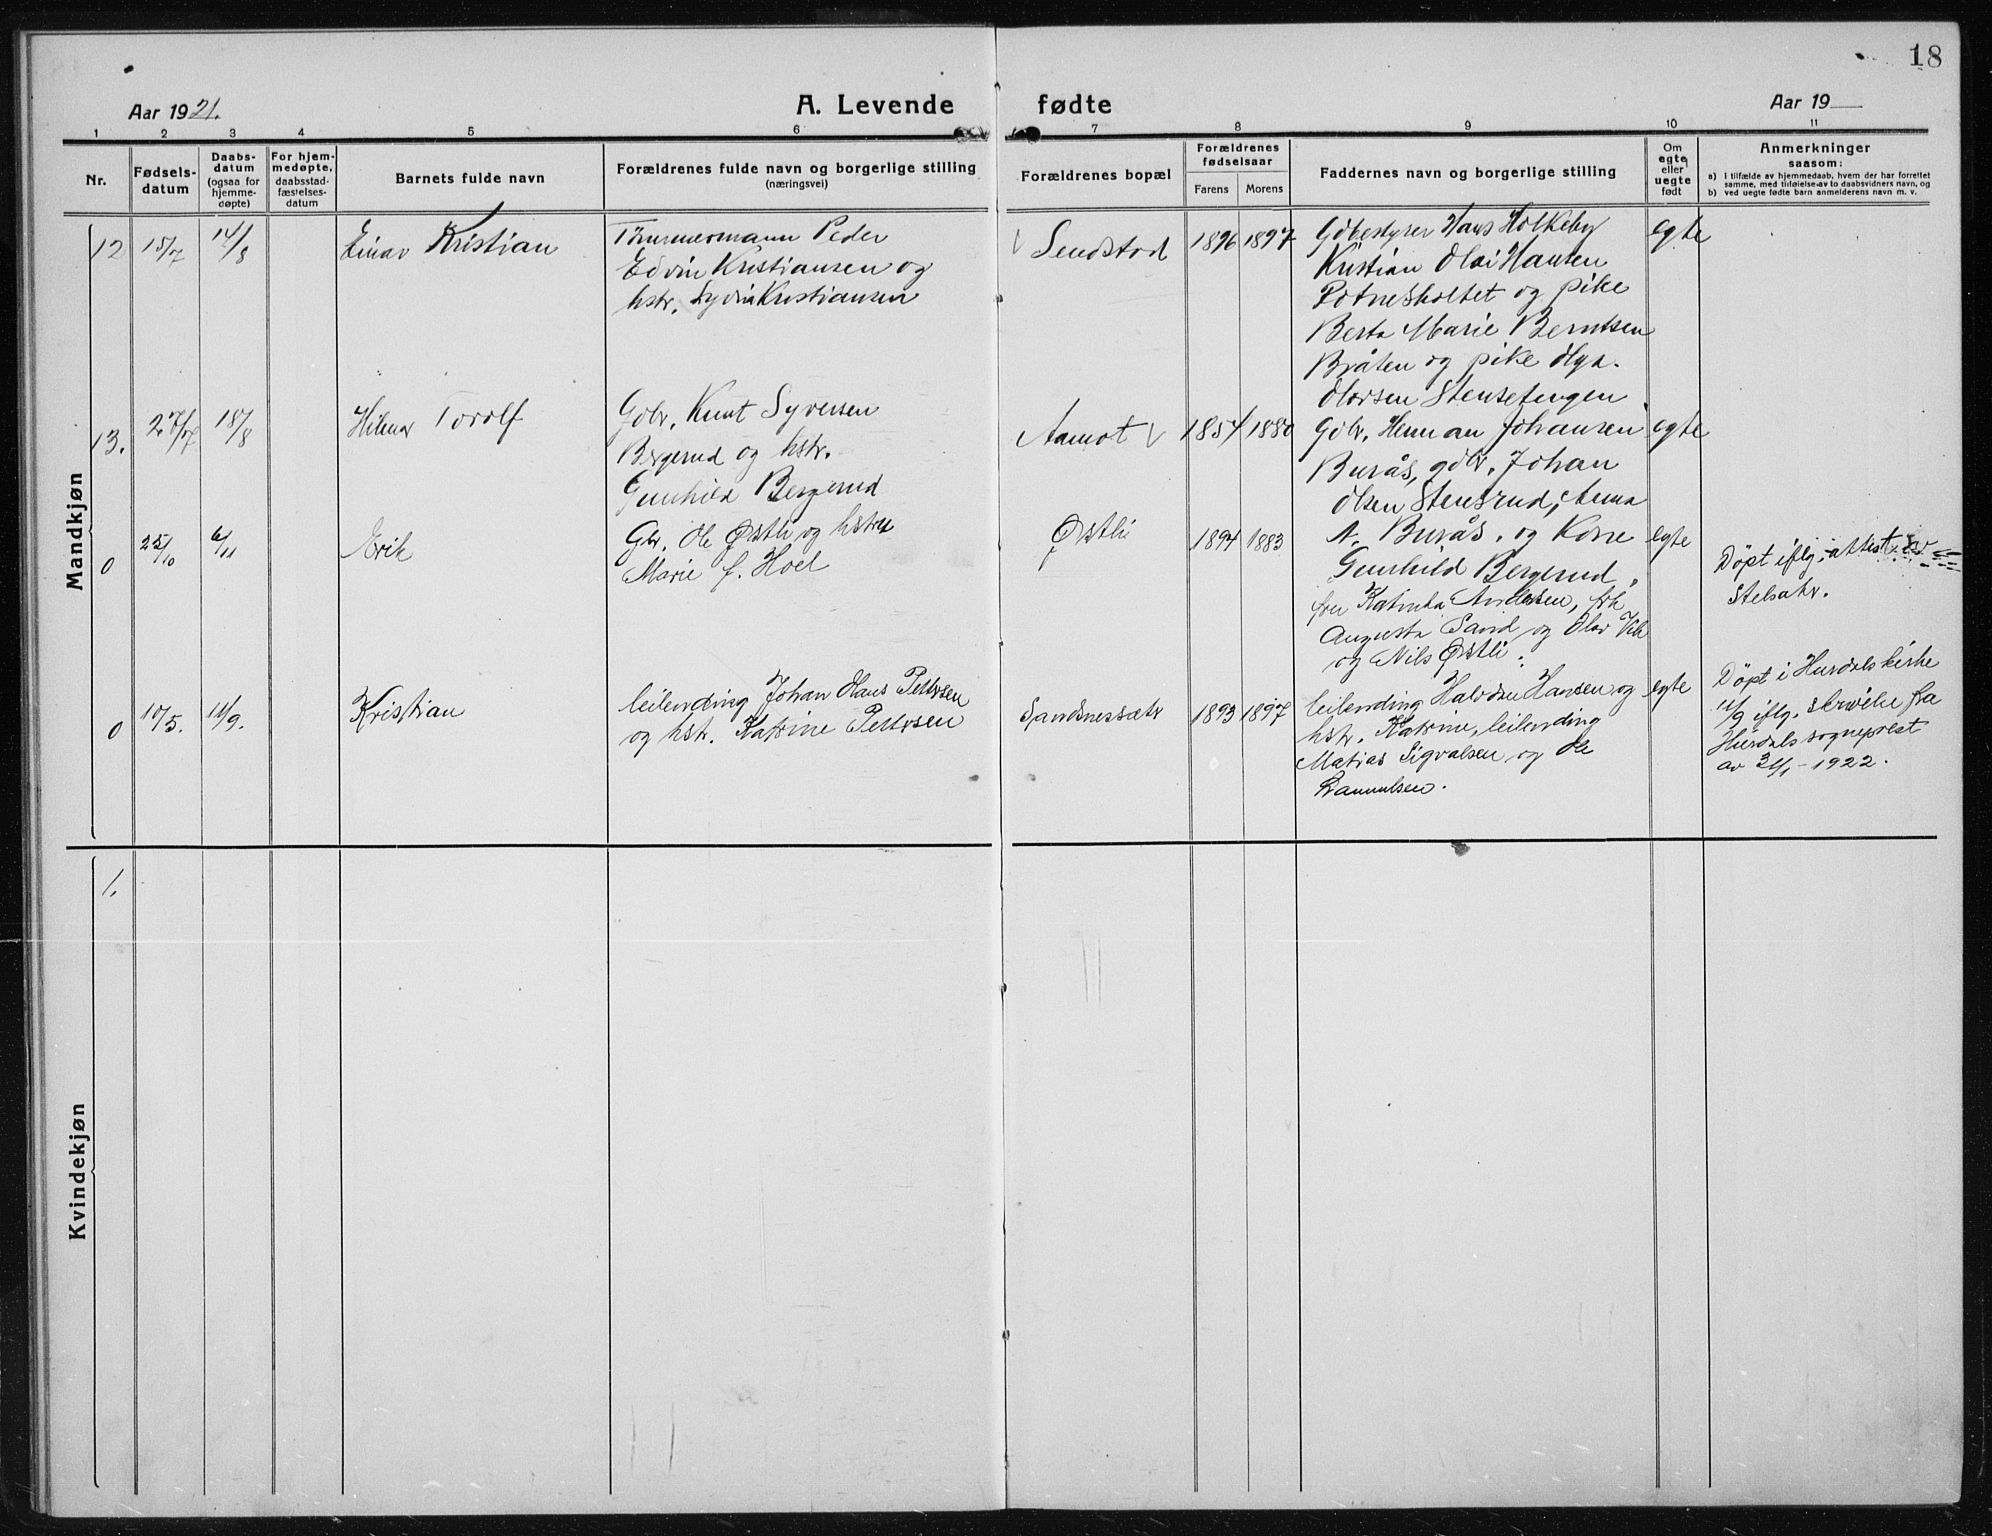 18
Aar 1921.
A. Levende fødte
Aar 19
1 2 3 4 5 6 7 8 9 10 11
Nr.
Fødselsdatum
Daabsdatum (ogsaa for hjemmedøpte)
For hjemmedøpte, daabsstadfæstelsesdatum
Barnets fulde navn
Forældrenes fulde navn og borgerlige stilling
(næringsvei)
Forældrenes bopæl
Forældrenes fødselsaar
Farens Morens
Faddernes navn og borgerlige stilling
Om egte eller uegte født
Anmerkninger
saasom:
a) i tilfælde av hjemmedaab, hvem der har forrettet
samme, med tilføielse av to daabsvidners navn, og
b) ved uegte fødte barn anmelderens navn m. v.
Mandkjøn
12 15/7 14/8 Einar Kristian
Tømmermann Peder
Edvin Kristiansen og
hstr. Sydvia Kristiansen
Sendstad 1896 1897
Gdbestyrer Hans Holkeby
Kristian Olai Hansen
og pike
Berta Marie Berntsen
Bråten og pike Olga
Olavsen Stensetengen
egte
13. 27/7 18/8 Hilmar Torolf
Gdbr. Knut Syversen
Bergerud og hstr.
Gunhild Bergerud
Aamot 1854 1880
Gdbr. Herman Johansen
Burås, gdbr. Johan
Olsen Stensrud, Anna
A. Burås, og Kone
Gunhild Bergerud.
egte
0 25/10 6/11 Erik
Gbr. Ole Østli og hstru
Marie f. Hoel
Østli 1894 1883
fru Katinka Andersen, frk
Augusta Sand og Olav Vik
og Nils Østli.
egte
Döpt iflg. attest
0 10/5. 11/9. Kristian
leilending Johan Hans Pettersen
og hstr. Katrine Pettersen
Sandnessætr 1893 1897
leilending Halvdan Hansen og
hstr. Katrine, leilending
Matias Sigvalsen og Ole
Samuelsen.
egte
Döpt i Hurdals kirke
11/9 iflg. skrivelse fra
Hurdals sogneprest
av 31/1-1922.
Kvindekjøn
1.